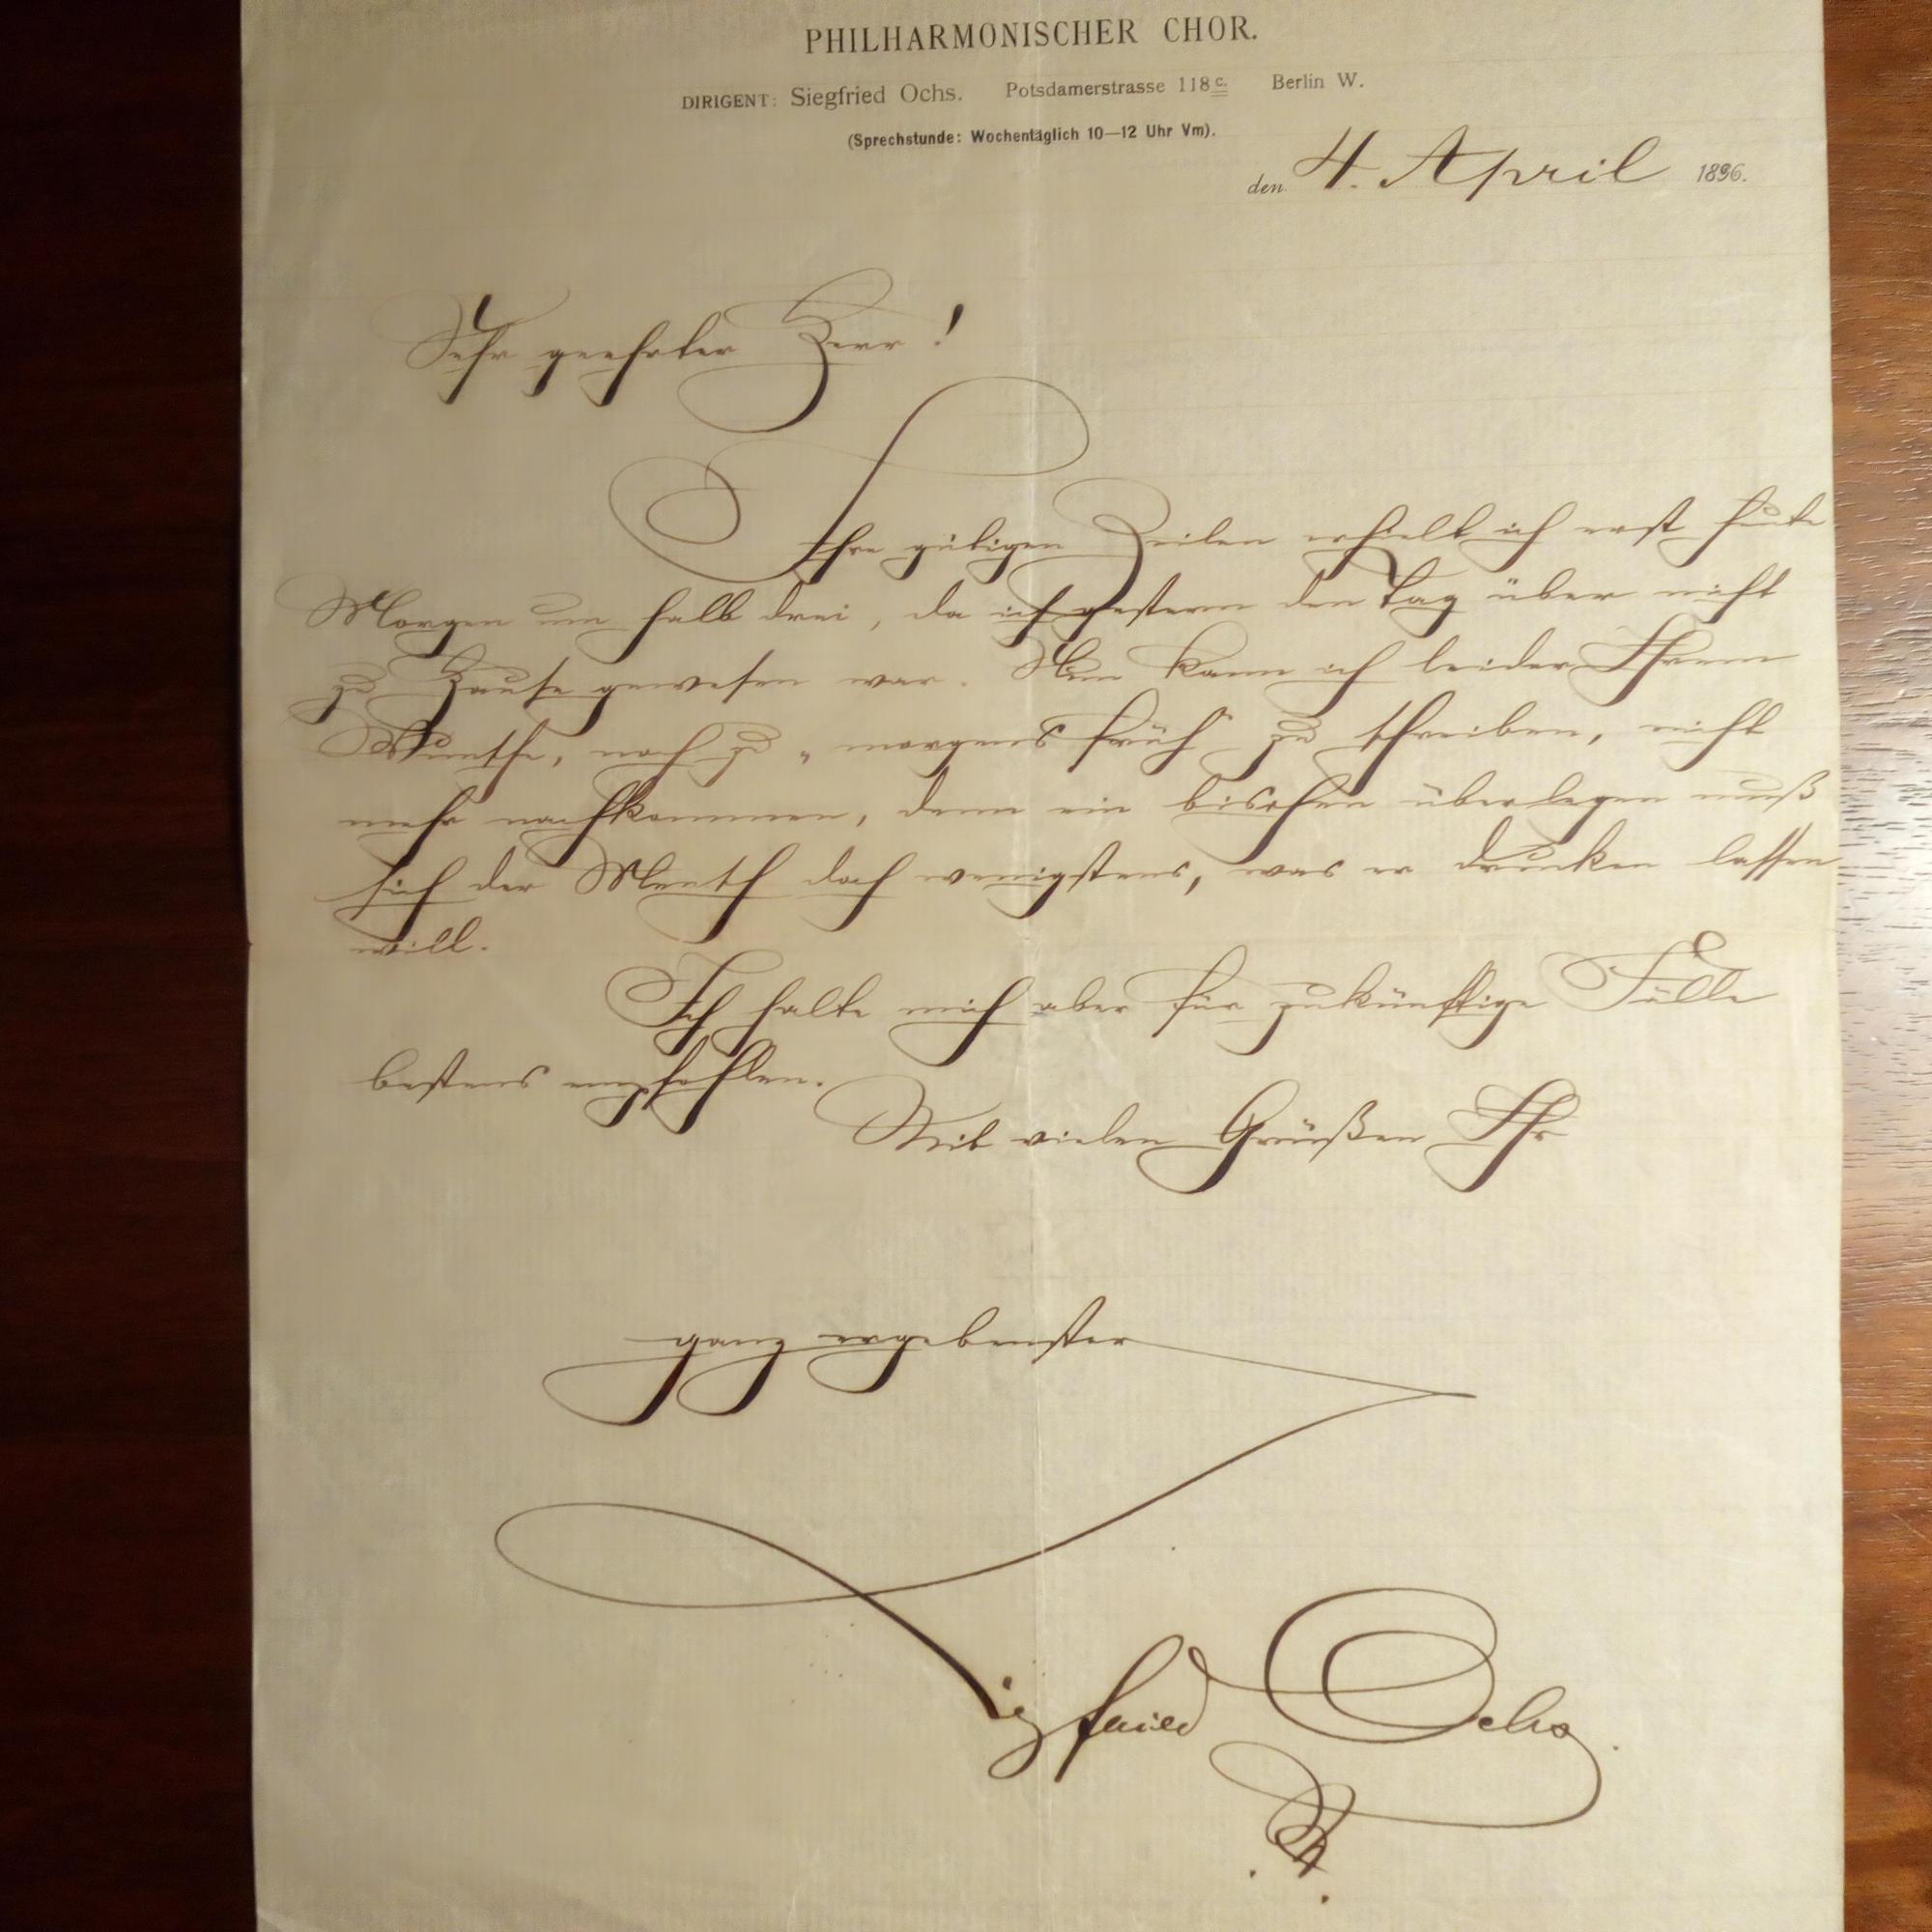 PHILHARMONISCHER CHOR.
DIRIGENT: Siegfried Ochs. Potsdamerstrasse 118c. Berlin W.
(Sprechstunde: Wochentäglich 10—12 Uhr Vm).
den 4. April 1896.
Sehr geehrter Herr!
Ihre gütigen Zeilen erhielt ich erst heute
Morgen um halb drei, da ich gestern den Tag über nicht
zu Hause gewesen war. Nun kann ich leider Ihrem
Wunsche, noch zu „morgens früh" zu schreiben, nicht
mehr nachkommen, denn ein bischen überlegen muß
sich der Mensch doch wenigstens, was er drucken lassen
will.
Ich halte mich aber für zukünftige Fälle
bestens empfohlen.
Mit vielen Grüßen Ihr
ganz ergebenster
Siegfried Ochs.